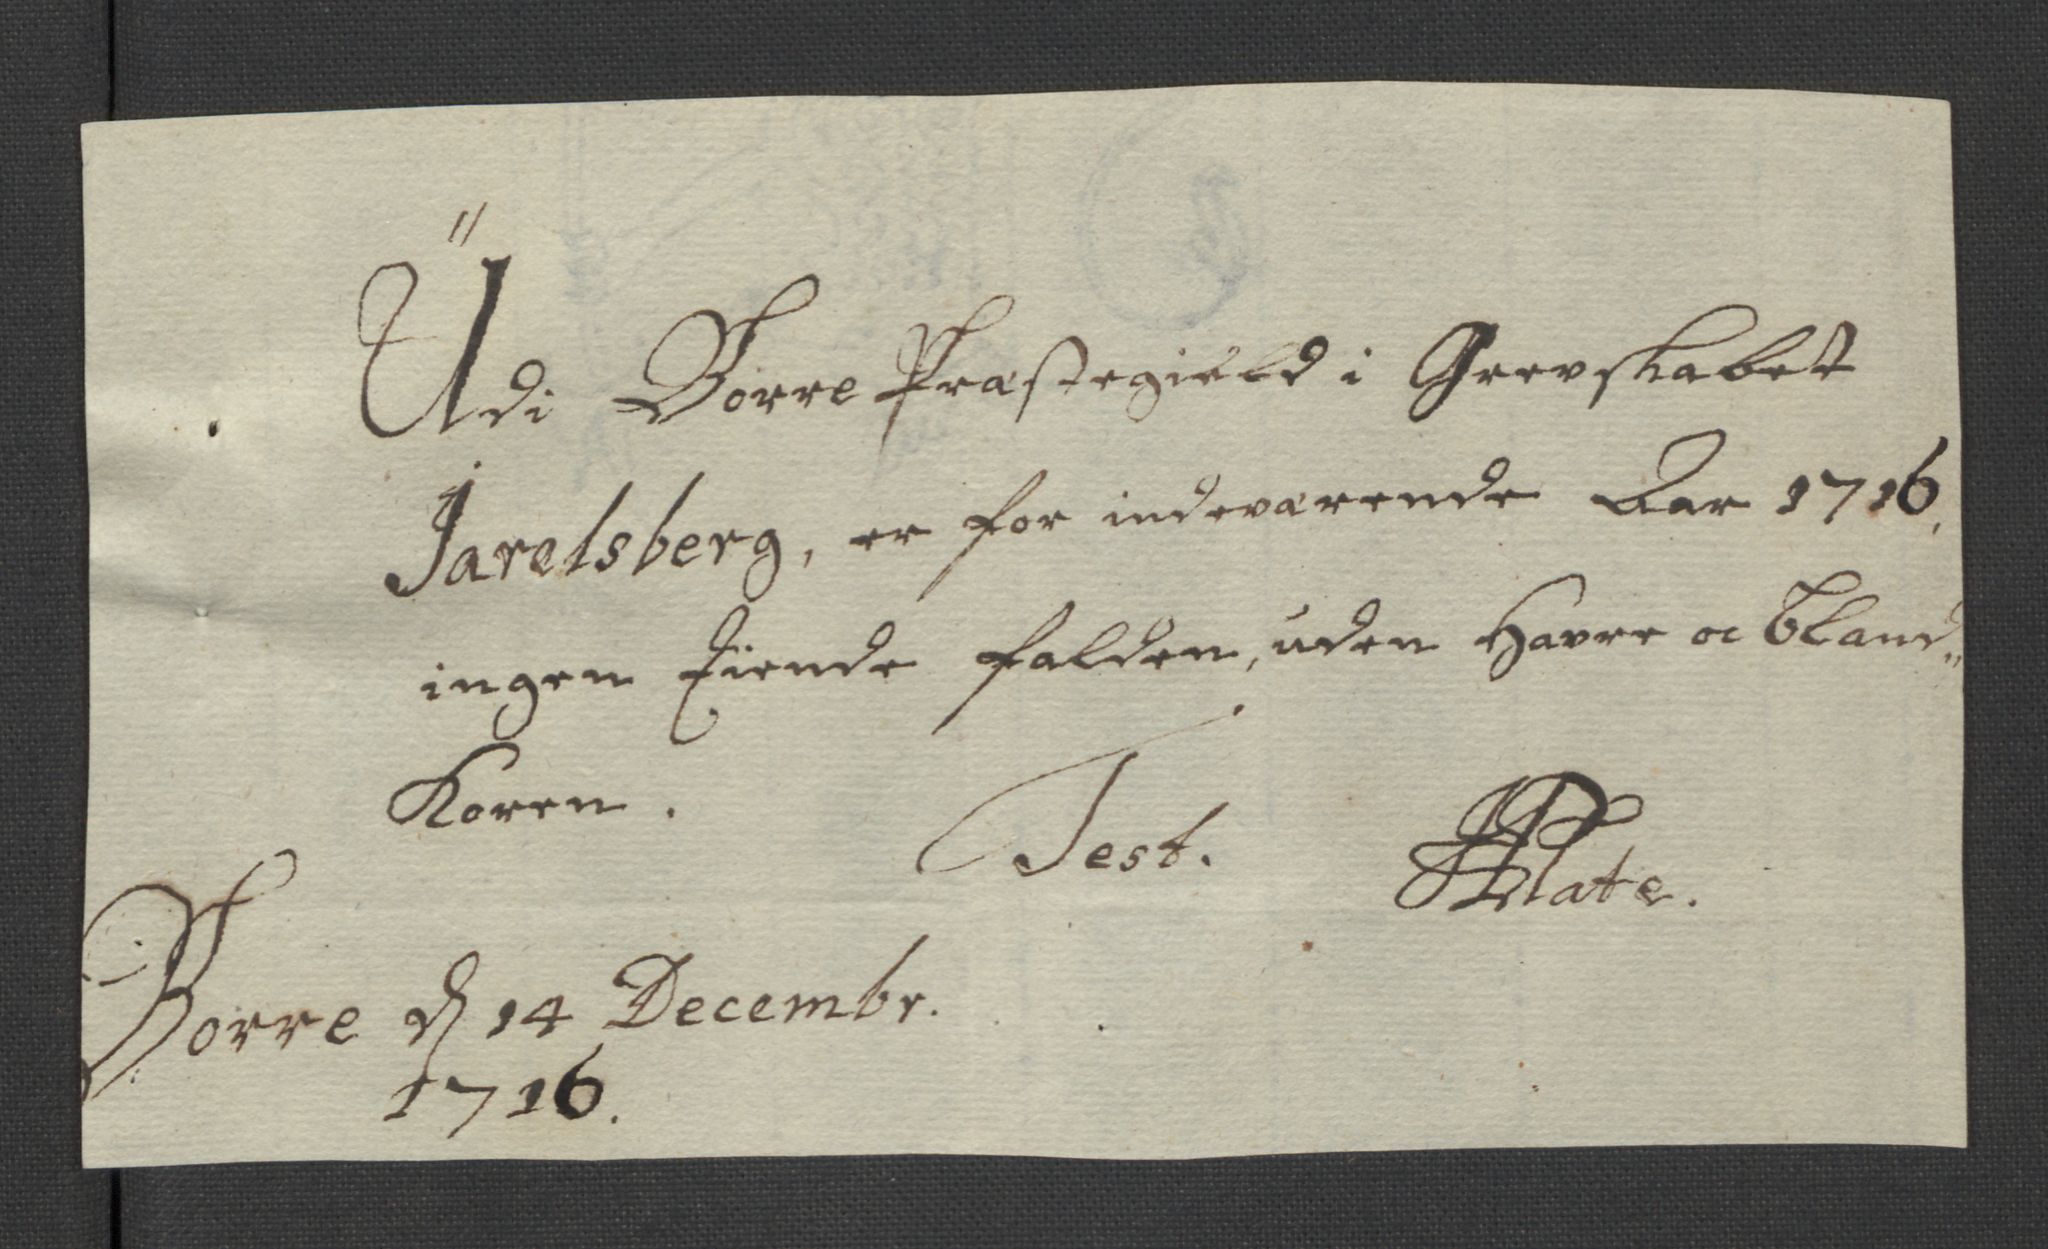 Udi Borre Præstegield i Grevskabet
Jarelsberg, er for indeværende Aar 1716,
ingen Tiende falden, uden Havre oc Bland„
Koren.
Test. Plate.
Borre d 14 Decembr.
1716.